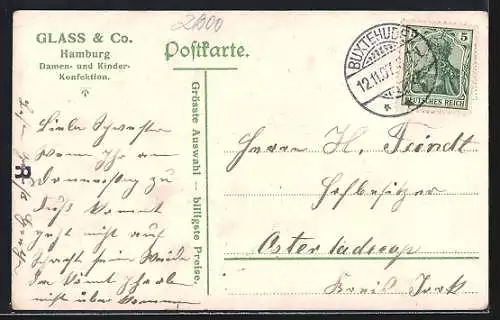 2800
GLASS & Co.
Hamburg
Damen- und Kinder-
Konfektion.
Postkarte.
Grösste Auswahl — billigste Preise.
BUXTEHUDE
12.11.07.
5
DEUTSCHES REICH
Liebe Schwester
Wenn Ihr am
Donnerstag zu
Fuß kommt
geht nicht auf
nicht über
Herrn H. Feindt
Hofbesitzer
Osterladecop
Kreis Jork
R